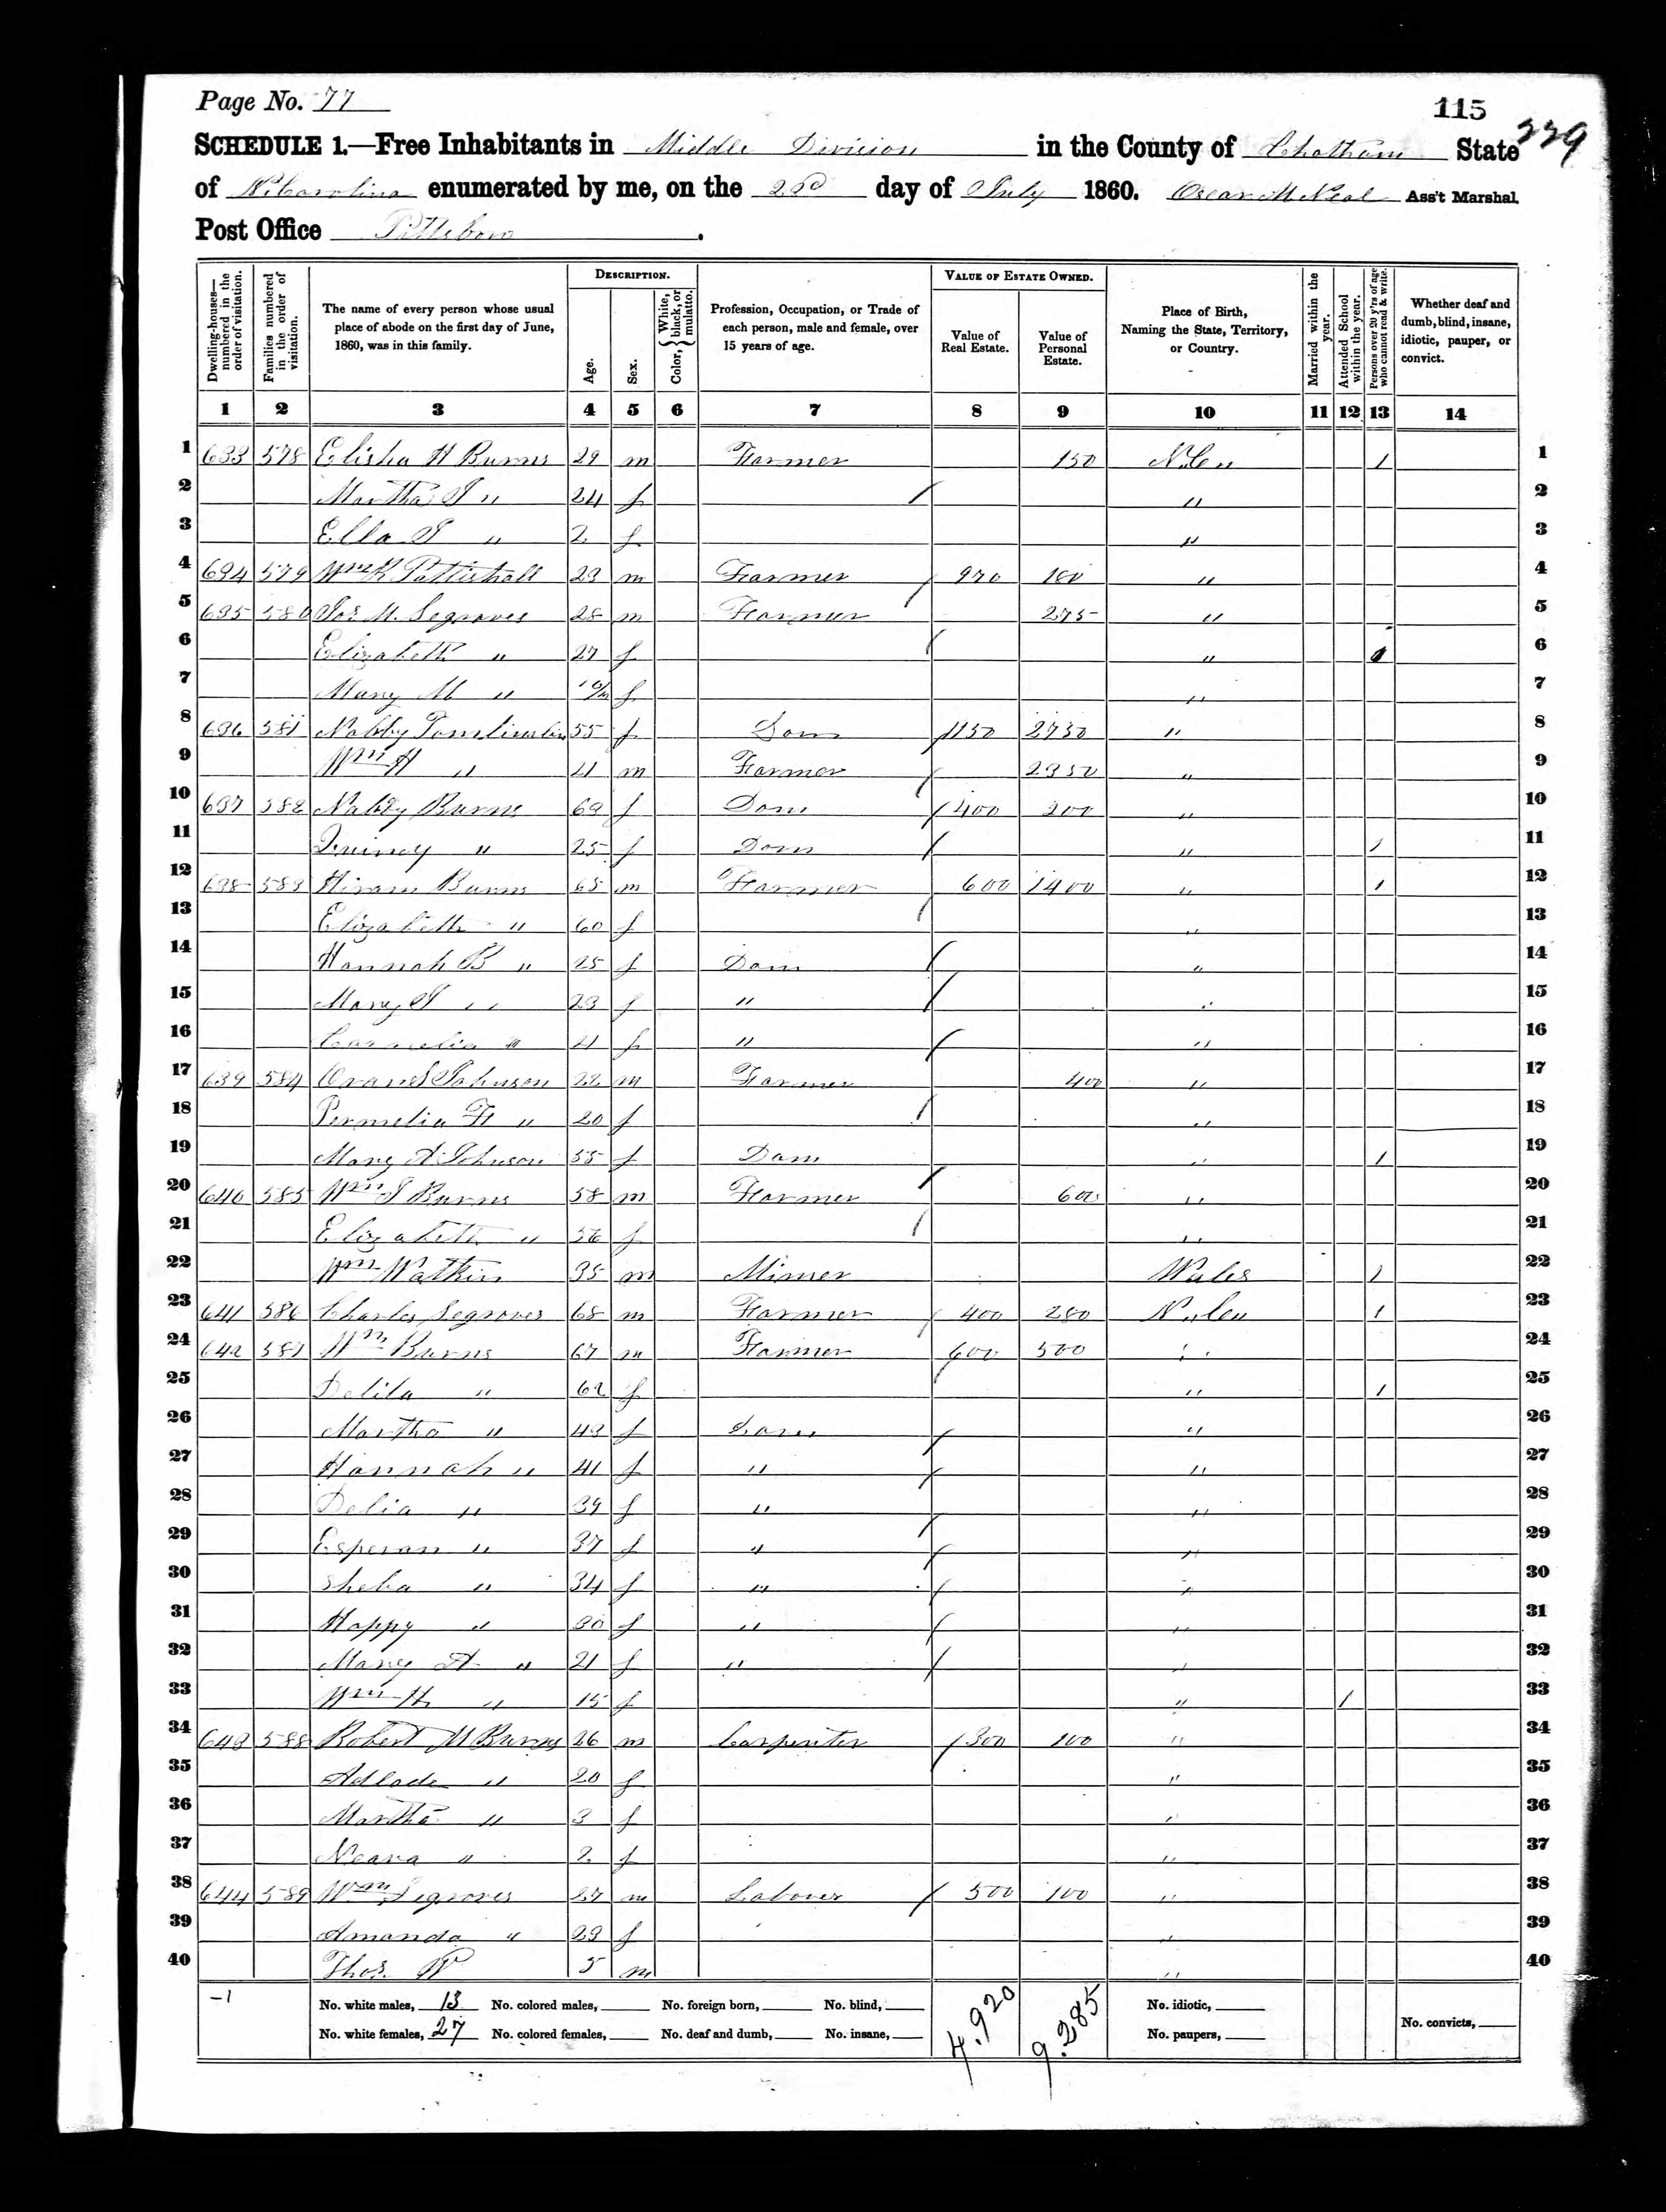 Page No. 77
115
229
SCHEDULE 1.—Free Inhabitants in Middle Division in the County of Chatham State
of N. Carolina enumerated by me, on the 23d day of July 1860. Oscar McNeal Ass't Marshal.
Post Office Pittsboro.
Dwelling-houses—numbered in the order of visitation.
Families numbered in the order of visitation.
The name of every person whose usual place of abode on the first day of June, 1860, was in this family.
DESCRIPTION.
Age.
Sex.
Color, { White, black, or mulatto.
Profession, Occupation, or Trade of each person, male and female, over 15 years of age.
VALUE OF ESTATE OWNED.
Value of Real Estate.
Value of Personal Estate.
Place of Birth, Naming the State, Territory, or Country.
Married within the year.
Attended School within the year.
Persons over 20 y'rs of age who cannot read & write.
Whether deaf and dumb, blind, insane, idiotic, pauper, or convict.
1 2 3 4 5 6 7 8 9 10 11 12 13 14
1 633 578 Elisha H Burns 29 m Farmer 150 N. Ca 1 1
2 Martha J " 24 f / " 2
3 Ella J " 2 f " 3
4 634 579 Wm K Pattishall 23 m Farmer / 970 180 " 4
5 635 580 Jos M. Segroves 28 m Farmer 275 " 5
6 Elizabeth " 27 f / " 1 6
7 Mary M " 10/12 f " 7
8 636 581 Nabby Tomlinson 55 f Dom 1150 2730 " 8
9 Wm H " 21 m Farmer / 2350 " 9
10 637 582 Nabby Burns 63 f Dom / 400 200 " 10
11 Quincy " 25 f Dom / " 1 11
12 638 583 Hiram Burns 65 m Farmer 600 1400 " 1 12
13 Elizabeth " 60 f / " 13
14 Hannah B " 25 f Dom / " 14
15 Mary J " 23 f " / " 15
16 " 21 f " / " 16
17 639 584 Oran S Johnson 22 m Farmer 400 " 17
18 Permelia F " 20 f / " 18
19 Mary A Johnson 55 f Dom " 1 19
20 640 585 Wm J Burns 58 m Farmer / 600 " 20
21 Elizabeth " 56 f / " 21
22 Wm Watkin 35 m Mimer Wales 1 22
23 641 586 Charles Segroves 68 m Farmer / 400 280 N. Ca 1 23
24 642 587 Wm Burns 67 m Farmer 600 500 " 24
25 Delila " 62 f " 1 25
26 Martha " 43 f Dom / " 26
27 Hannah " 41 f " / " 27
28 Delia " 39 f " " 28
29 Esperan " 37 f " / " 29
30 Sheba " 34 f " / " 30
31 Happy " 30 f " / " 31
32 Mary A " 21 f " / " 32
33 Wm H " 15 f " 1 33
34 643 588 Robert M Burns 26 m Carpenter / 300 100 " 34
35 Adlade " 20 f " 35
36 Martha " 3 f " 36
37 " 2 f " 37
38 644 589 Wm Segroves 27 m Labover / 500 100 " 38
39 Amanda " 23 f " 39
40 Thos. W 5 m " 40
-1
No. white males, 13 No. colored males, No. foreign born, No. blind, 4.920 9.285 No. idiotic,
No. white females, 27 No. colored females, No. deaf and dumb, No. insane, No. paupers, No. convicts,